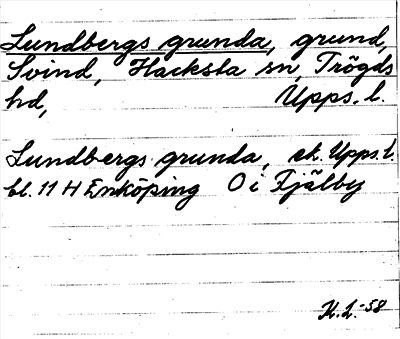 Lundbergs grunda, grund,
Svind, Hacksta sn, Trögds
hd, Upps. l.
Lundbergs grunda, ek. Upps. l.
bl. 11 H Enköping O i Fjälby
K. L. -58